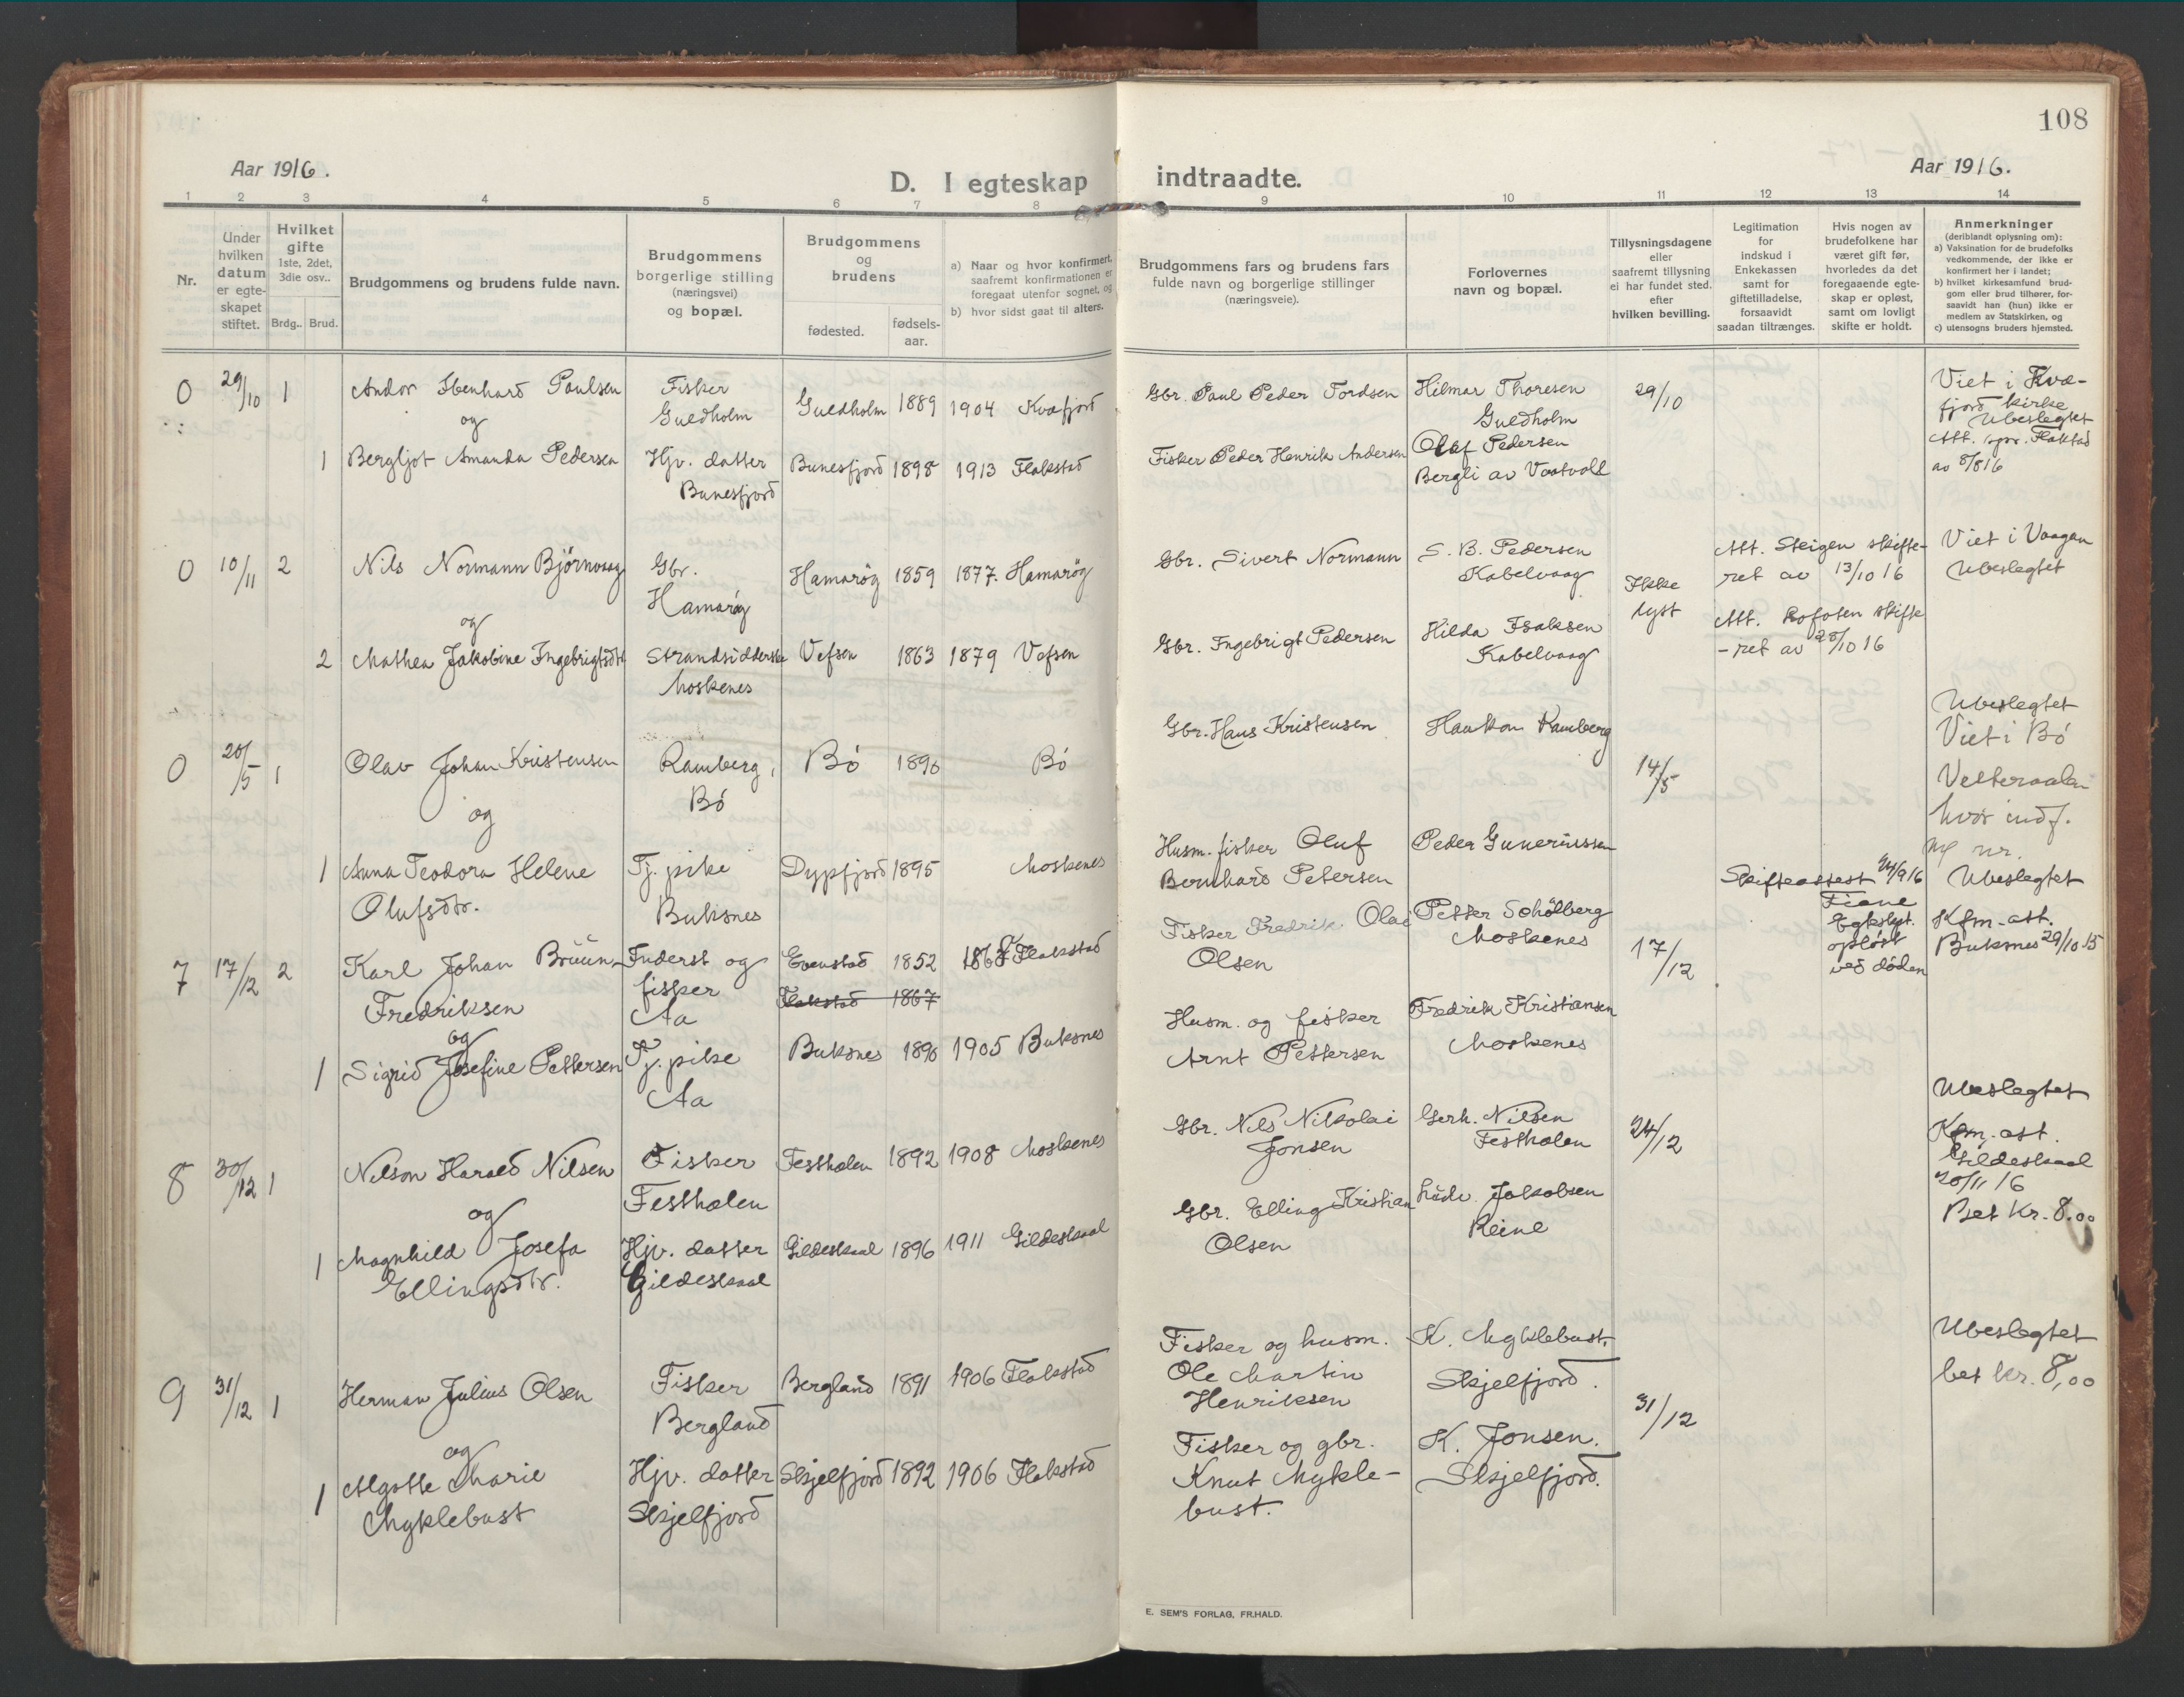 108
Aar 1916.
D. I egteskap indtraadte.
Aar 1916.
1 2 3 4 5 6 7 8 9 10 11 12 13 14
Nr.
Under hvilken datum er egte-skapet stiftet.
Hvilket gifte
1ste, 2det, 3die osv..
Brdg.. Brud.
Brudgommens og brudens fulde navn.
Brudgommens borgerlige stilling (næringsvei) og bopæl.
Brudgommens og brudens
fødested.
fødsels-aar.
a) Naar og hvor konfirmert, saafremt konfirmationen er foregaat utenfor sognet, og
b) hvor sidst gaat til alters.
Brudgommens fars og brudens fars fulde navn og borgerlige stillinger (næringsveie).
Forlovernes navn og bopæl.
Tillysningsdagene eller saafremt tillysning ei har fundet sted. efter hvilken bevilling.
Legitimation for indskud i Enkekassen samt for giftetilladelse, forsaavidt saadan tiltrænges.
Hvis nogen av brudefolkene har været gift før, hvorledes da det foregaaende egte-skap er opløst, samt om lovligt skifte er holdt.
Anmerkninger
(deriblandt oplysning om):
a) Vaksination for de brudefolks vedkommende, der ikke er konfirmert her i landet;
b) hvilket kirkesamfund brud-gom eller brud tilhører, for-saavidt han (hun) ikke er medlem av Statskirken, og
c) utensogns bruders hjemsted.
0 29/10 1 Andor Ibenhard Paulsen Fisker Guldholm Guldholm 1889 1904 Kvæfjord Gbr. Paul Peder Tordsen Hilmar Thoresen Guldholm 29/10 Viet i Kvæ-fjord kirke Ubeslegtet
og
1 Bergljot Amanda Pedersen Hjv. datter Bunesfjord Bunesfjord 1898 1913 Flakstad Fisker Peder Henrik Andersen Olaf Pedersen Bergli av Vaatvold Att. spr. Flakstad av 8/8 16
0 10/11 2 Nils Normann Bjørnvaag Gbr. Hamarøy Hamarøy 1859 1877. Hamarøy Gbr. Sivert Normann S. B. Pedersen Kabelvaag Ikke lyst Att. Steigen skifte-ret av 13/10 16 Viet i Vaagan Ubeslegtet
og
2 Mathea Jakobine Ingebrigtsdtr Strandsidderske Moskenes Vefsen 1863 1879 Vefsen Gbr. Ingebrigt Pedersen Hilda Isaksen Kabelvaag Att. Lofoten skifte-ret av 28/10 16
0 20/5 1 Olav Johan Kristensen Ramberg, Bø Bø 1896 Bø Gbr. Hans Kristensen Haakon Ramberg 14/5 Ubeslegtet Viet i Bø Vesteraalen hvor indf. nr.
og
1 Anna Teodora Helene Olufsdtr. Tj. pike Buksnes Dypfjord 1895 Moskenes Husm. fisker Oluf Bernhard Petersen Peder Guneriussen
7 17/12 2 Karl Johan Brüün-Fredriksen Inderst og fisker Aa Evenstad 1852 1867 Flakstad Fisker Fredrik Olai Olsen Petter Schölberg Moskenes 17/12 Skifteattest 24/9 16 Egteskpt. opløst ved døden Ubeslegtet Kfm-att. Buksnes 29/10 15
Flakstad 1867
og
1 Sigrid Josefine Pettersen Tj. pike Aa Buksnes 1890 1905 Buksnes Husm. og fisker Arnt Pettersen Fredrik Kristiansen Moskenes
8 30/12 1 Nilson Harald Nilsen Fisker Festhælen Festhælen 1892 1908 Moskenes Gbr. Nils Nikolai Jonsen Gerh. Nilsen Festhælen 24/12 Ubeslegtet Kfm. att. Gildeskaal 20/11 16 Bet Kr. 8.00
og
1 Magnhild Josefa Ellingsdtr. Hjv. datter Gildeskaal Gildeskaal 1896 1911 Gildeskaal Gbr. Elling Kristian Olsen Ludv. Jakobsen Reine
9 31/12 1 Herman Julius Olsen Fisker Bergland Bergland 1891 1906 Flakstad Fisker og husm. Ole Martin Henriksen K. Myklebust. Skjelfjord. 31/12 Ubeslegtet bet kr. 8,00
og
1 Algotte Marie Myklebust Hjv. datter Skjelfjord Skjelfjord 1892 1906 Flakstad Fisker og gbr. Knut Mykle-bust. K. Jonsen. Skjelfjord.
E. SEM'S FORLAG, FR.HALD.